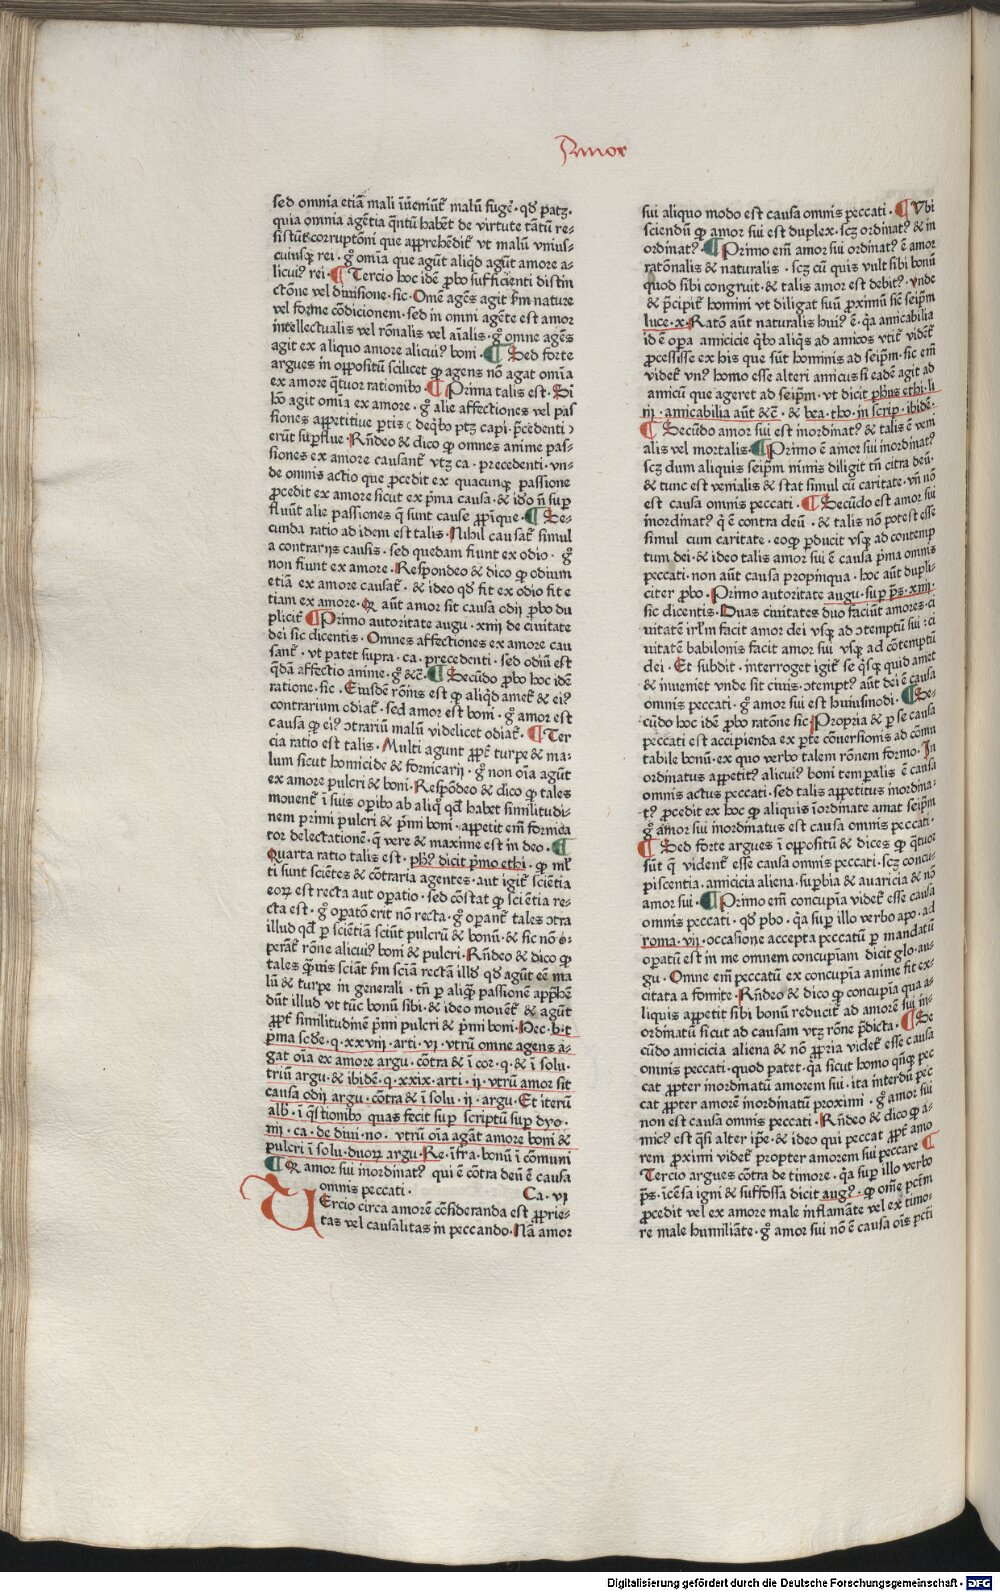 Amor
sed omnia etiã mali ĩuẽiũt᷑ malũ fugẽ· qđ p̃atꝫ·
quia omnia agẽtia q̃ntũ habẽt de virtute tãtũ re⸗
sistũt·corruptõni que apprehẽdit᷑ vt malũ vnius⸗
cuiusqꝫ rei· gͦ om̃ia que agũt aliqđ agũt amore a⸗
licuiꝰ rei· ¶ Tercio hoc idẽ ꝓbo sufficienti distin
ctõne vel diuisione·sic·Om̃e agẽs agit ẜm nature
vel forme cõdicionem·sed in omni agẽte est amor
intellectualis vel rõnalis vel aĩalis·gͦ omne agẽs
agit ex aliquo amore alicuiꝰ boni· ¶ Sed forte
argues in oppositũ scilicet ꝙ agens nõ agat om̃ia
ex amore q̃tuor rationibꝰ· ¶ Prima talis est· Si
hõ agit om̃ia ex amore· gͦ alie affectiones vel pas
siones appetitiue ꝑtis (de qͥbꝰ ptꝫ capi· p̃cedenti)
erũt suꝑflue·Rñdeo & dico ꝙ omnes anime pas⸗
siones ex amore causant᷑ vtꝫ ca· precedenti· vn⸗
de omnis actio que ꝓcedit ex quacunqꝫ passione
ꝓcedit ex amore sicut ex p̃ma causa·& idõ ñ suꝑ
fluũt alie passiones q̃ sunt cause ꝓpĩque· ¶ Se⸗
cunda ratio ad idem est talis·Nihil causat᷑ simul
a contrarijs causis· sed quedam fiunt ex odio· gͦ
non fiunt ex amore·Respondeo & dico ꝙ odium
etiã ex amore causat᷑· & ideo qđ fit ex odio fit e
tiam ex amore· Q aũt amor sit causa odij ꝓbo du
plicit᷑ ¶ Primo autoritate augu· xiiij de ciuitate
dei sic dicentis· Omnes affectiones ex amore cau
sant᷑· vt patet supra· ca· precedenti· sed odiũ est
q̃dã affectio anime· gͦ &c̃· ¶ Secũdo ꝓbo hoc idẽ
ratione·sic· Eiusdẽ rõnis est ꝙ aliqđ amet᷑ & eiꝰ
contrarium odiat᷑· sed amor est boni· gͦ amor est
causa ꝙ eiꝰ ↄtrariũ malũ videlicet odiat᷑· ¶ Ter
cia ratio est talis· Multi agunt ꝓpt᷑ turpe & ma⸗
lum sicut homicide & fornicarij· gͦ non oĩa agũt
ex amore pulcri & boni·Respõdeo & dico ꝙ tales
mouent᷑ ĩ suis oꝑibꝰ ab aliqͦ qđ habet similitudi⸗
nem primi pulcri & p̃mi boni· appetit em̃ fornica
tor delectationẽ·q̃ vere & maxime est in deo· ¶
Quarta ratio talis est· ph̃ꝰ dicit p̃mo ethi· ꝙ ml̃
ti sunt sciẽtes & cõtraria agentes· aut igit᷑ sciẽtia
eoꝝ est recta aut oꝑatio· sed cõstat ꝙ sciẽtia re⸗
cta est· gͦ oꝑatõ erit nõ recta·gͦ oꝑant᷑ tales ↄtra
illud qđ ꝑ sciẽtiã sciũt pulcrũ & bonũ·& sic nõ o⸗
perãt᷑ rõne alicuiꝰ boni & pulcri· Rñdeo & dico ꝙ
tales q̃uis sciãt ẜm sciã rectã illđ qđ agũt eẽ ma
lũ & turpe in generali· tñ ꝑ aliqͣ passionẽ app̃hẽ
dũt illud vt tũc bonũ sibi·& ideo mouẽt᷑ & agũt
ꝓpt᷑ similitudinẽ p̃mi pulcri & p̃mi boni· Hec·b·t·
p̃ma scđe·q·xxviij·arti·vj·vtrũ omne agens a⸗
gat oĩa ex amore argu·cõtra & ĩ cor·q·& ĩ solu·
triũ argu·& ibidẽ·q·xxix·arti·ij·vtrũ amor sit
causa odij argu·cõtra & ĩ solu·ij·argu·Et iterũ
alb̃·ĩ q̃stionibꝰ quas fecit suꝑ scriptũ suꝑ dyo·
iiij·ca·de diui·no·vtrũ oĩa agãt amore boni &
pulcri ĩ solu·duoꝝ argu·Re·ĩfra·bonũ ĩ cõmuni
¶ Q amor sui inordinatꝰ qui ẽ cõtra deũ ẽ causa
omnis peccati·         Ca·vj
Tercio circa amorẽ cõsideranda est ꝓprie⸗
tas vel causalitas in peccando·Nã amor
sui aliquo modo est causa omnis peccati· ¶ Vbi
sciendũ ꝙ amor sui est duplex·scꝫ ordinatꝰ & in
ordinatꝰ· ¶ Primo em̃ amor sui ordinatꝰ ẽ amor
ratõnalis & naturalis·scꝫ cũ quis vult sibi bonũ
quod sibi congruit·& talis amor est debitꝰ·vnde
& p̃cipit᷑ homini vt diligat suũ proximũ sic̃ seip̃m
luce·x·Ratõ aũt naturalis huiꝰ ẽ·qͣ amicabilia
id ẽ oꝑa amicicie qͥbꝰ aliqͥs ad amicos vtit᷑ videt᷑
ꝓcessisse ex his que sũt hominis ad seip̃m·sic em̃
videt᷑ vnꝰ homo esse alteri amicus si eadẽ agit ad
amicũ que ageret ad seip̃m·vt dicit ph̃us ethi·li
iij·amicabilia aũt &c̃·& bea·tho·in scrip·ibidẽ·
¶ Secũdo amor sui est inordinatꝰ & talis ẽ veni
alis vel mortalis· ¶ Primo ẽ amor sui inordinatꝰ
scꝫ dum aliquis seip̃m nimis diligit tñ citra deũ·
& tunc est venialis & stat simul cũ caritate·vñ nõ
est causa omnis peccati· ¶ Secũdo est amor sui
inordinatꝰ q̃ ẽ contra deũ·& talis nõ potest esse
simul cum caritate·eoꝙ ꝑducit vsqꝫ ad contemp
tum dei·& ideo talis amor sui ẽ causa p̃ma omnis
peccati·non aũt causa propinqua·hoc aũt dupli⸗
citer ꝓbo· Primo autoritate augu·suꝑ p̃s·xiiij·
sic dicentis· Duas ciuitates duo faciũt amores·ci
uitatẽ irl̃m facit amor dei vsqꝫ ad ↄtemptũ sui:ci
uitatẽ babilonis facit amor sui vsqꝫ ad cõtemptũ
dei· Et subdit·interroget igit᷑ se qͥsqꝫ quid amet
& inueniet vnde sit ciuis·ↄtemptꝰ aũt dei ẽ causa
omnis peccati·gͦ amor sui est huiusmodi· ¶ Se⸗
cũdo hoc idẽ ꝓbo ratõne sic Propria & ꝑ se causa
peccati est accipienda ex ꝑte cõuersionis ad cõmu
tabile bonũ·ex quo verbo talem rõnem formo·In
ordinatus appetitꝰ alicuiꝰ boni temꝑalis ẽ causa
omnis actus peccati·sed talis appetitus inordina⸗
tꝰ ꝓcedit ex hoc ꝙ aliquis ĩordinate amat seip̃m
gͦ amor sui inordinatus est causa omnis peccati·
¶ Sed forte argues ĩ oppositũ & dices ꝙ q̃tuor
sũt q̃ vident᷑ esse causa omnis peccati·scꝫ concu⸗
piscentia·amicicia aliena·suꝑbia & auaricia & nõ
amor sui· ¶ Primo em̃ concupĩa videt᷑ esse causa
omnis peccati·qđ pbo·qͣ suꝑ illo verbo apo·ad
roma·vij·occasione accepta peccatũ ꝑ mandatũ
oꝑatũ est in me omnem concupĩam dicit glo·au⸗
gu·Omne em̃ peccatũ ex concupĩa anime fit ex⸗
citata a fomite·Rñdeo & dico ꝙ concupĩa qua a⸗
liquis appetit sibi bonũ reducit᷑ ad amorẽ sui in⸗
ordinatũ sicut ad causam vtꝫ rõne p̃dicta· ¶ Se
cũdo amicicia aliena & nõ ꝓpria videt᷑ esse causa
omnis peccati·quod patet·qͣ sicut homo qñqꝫ pec
cat ꝓpter inordinatũ amorem sui·ita interdũ pec
cat ꝓpter amorẽ inordinatũ proximi·gͦ amor sui
non est causa omnis peccati·Rñdeo & dico ꝙ a⸗
micꝰ est q̃si alter ip̃e·& ideo qui peccat ꝓpt᷑ amo
rem proximi videt᷑ propter amorem sui peccare ¶
Tercio argues cõtra de timore·qͣ suꝑ illo verbo
p̃s·ĩcẽsa igni & suffossa dicit augꝰ·ꝙ om̃e pctm̃
ꝓcedit vel ex amore male inflamãte vel ex timo⸗
re male humiliãte·gͦ amor sui nõ ẽ causa oĩs pcti
Digitalisierung gefördert durch die Deutsche Forschungsgemeinschaft - DFG